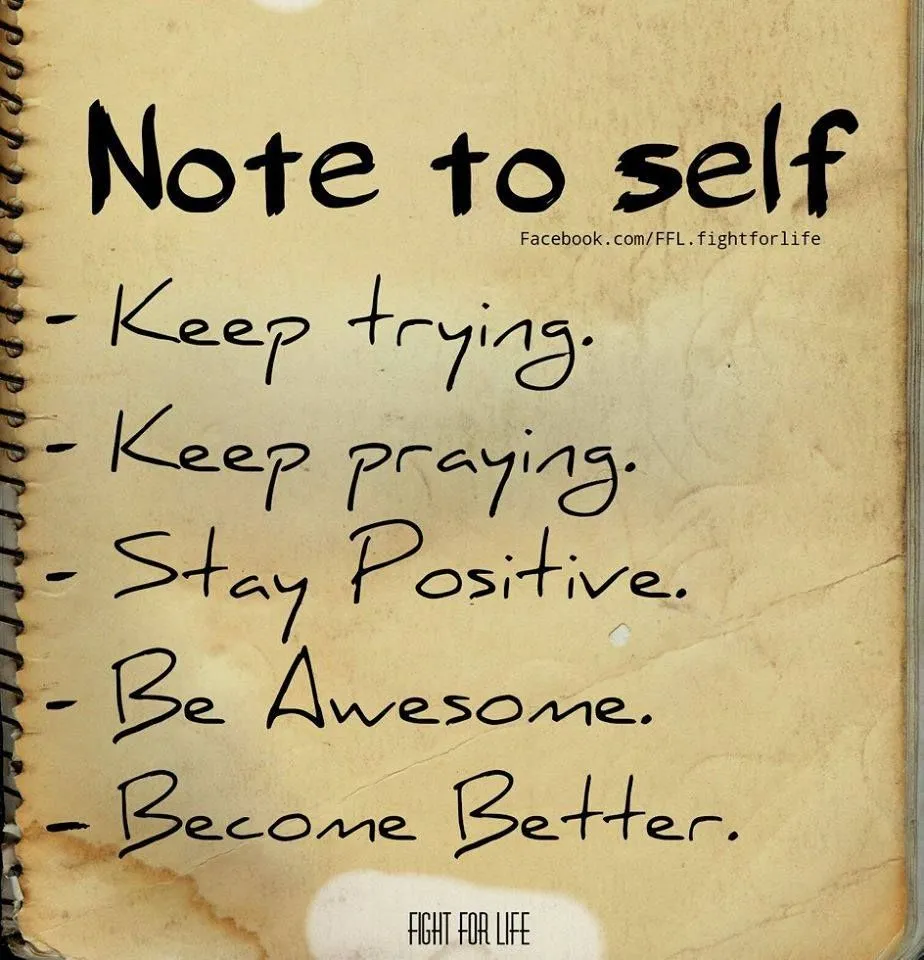 Note to self
Facebook.com/FFL.fightforlife
- Keep trying.
- Keep praying.
- Stay Positive.
- Be Awesome.
- Become Better.
FIGHT FOR LIFE